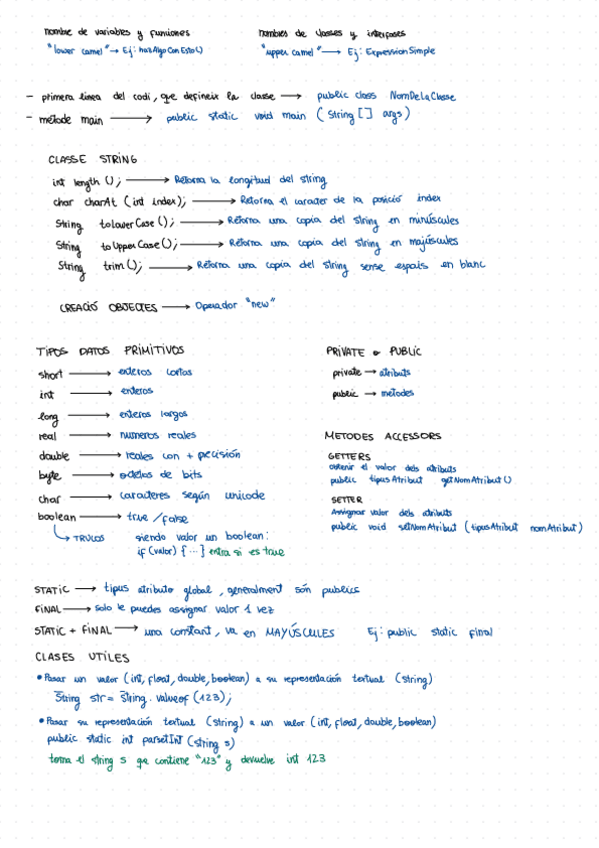 nombre de variables y funciones
nombres de classes y interfases
"lower camel" → Ej: hazAlgoConEsto()
"upper camel" → Ej: ExpressionSimple
- primera línea del codi, que defineix la classe → public class NomDeLaClasse
- mètode main → public static void main (String[] args)
CLASSE STRING
int length (); → Retorna la longitud del string
char charAt (int index); → Retorna el caracter de la posició index
String toLowerCase (); → Retorna una copia del string en minúscules
String toUpperCase (); → Retorna una copia del string en majúscules
String trim (); → Retorna una copia del string sense espais en blanc
CREACIÓ OBJECTES → Operador "new"
TIPOS DATOS PRIMITIVOS
short → enteros cortos
int → enteros
long → enteros largos
real → numeros reales
double → reales con + precisión
byte → de bits
char → caracteres según unicode
boolean → true / false
→ TRUCOS siendo valor un boolean:
if (valor) {...} entra si es true
PRIVATE o PUBLIC
private → atributs
public → metodes
METODES ACCESSORS
GETTERS
obtenir el valor dels atributs
public tipusAtribut getNomAtribut()
SETTER
Assignar valor dels atributs
public void setNomAtribut (tipusAtribut nomAtribut)
STATIC → tipus atributo global, generalment són publics
FINAL → solo le puedes assignar valor 1 vez
STATIC + FINAL → una constant, va en MAYÚSCULES Ej: public static final
CLASES UTILES
• Pasar un valor (int, float, double, boolean) a su representación textual (string)
String str = String.valueof (123);
• Pasar su representación textual (string) a un valor (int, float, double, boolean)
public static int parsetInt (string s)
toma el string s que contiene "123" y devuelve int 123